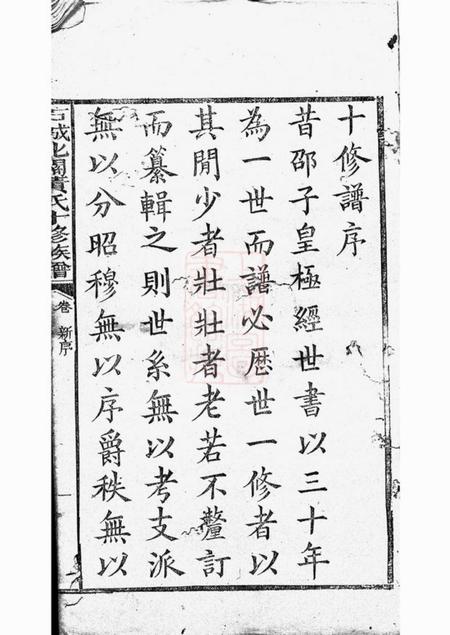 十修譜序
昔邵子皇極經世書以三十年
為一世而譜必歷世一修者以
其閒少者壯壯者老若不釐訂
而纂輯之則世系無以考支派
無以分昭穆無以序爵秩無以
城北閣黃氏十修族譜
卷 新序